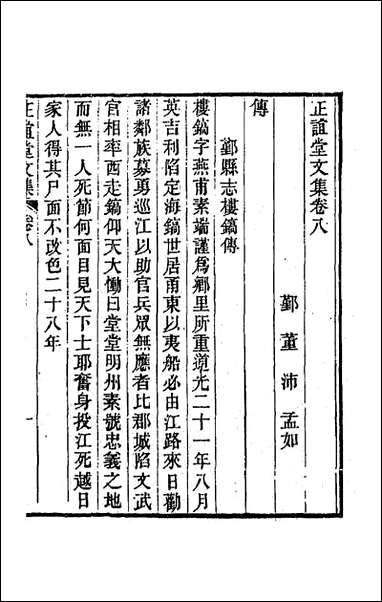 正誼堂文集卷八
鄞董沛孟如
傳
鄞縣志樓鎬傳
樓鎬字燕甫素端謹爲鄉里所重道光二十一年八月
英吉利陷定海鎬世居甬東以夷船必由江路來日勸
諸鄰族募勇巡江以助官兵眾無應者比郡城陷文武
官相率西走鎬仰天大慟曰堂堂明州素號忠義之地
而無一人死節何面目見天下士耶奮身投江死越日
家人得其尸面不改色二十八年
正誼堂文集
卷八
一